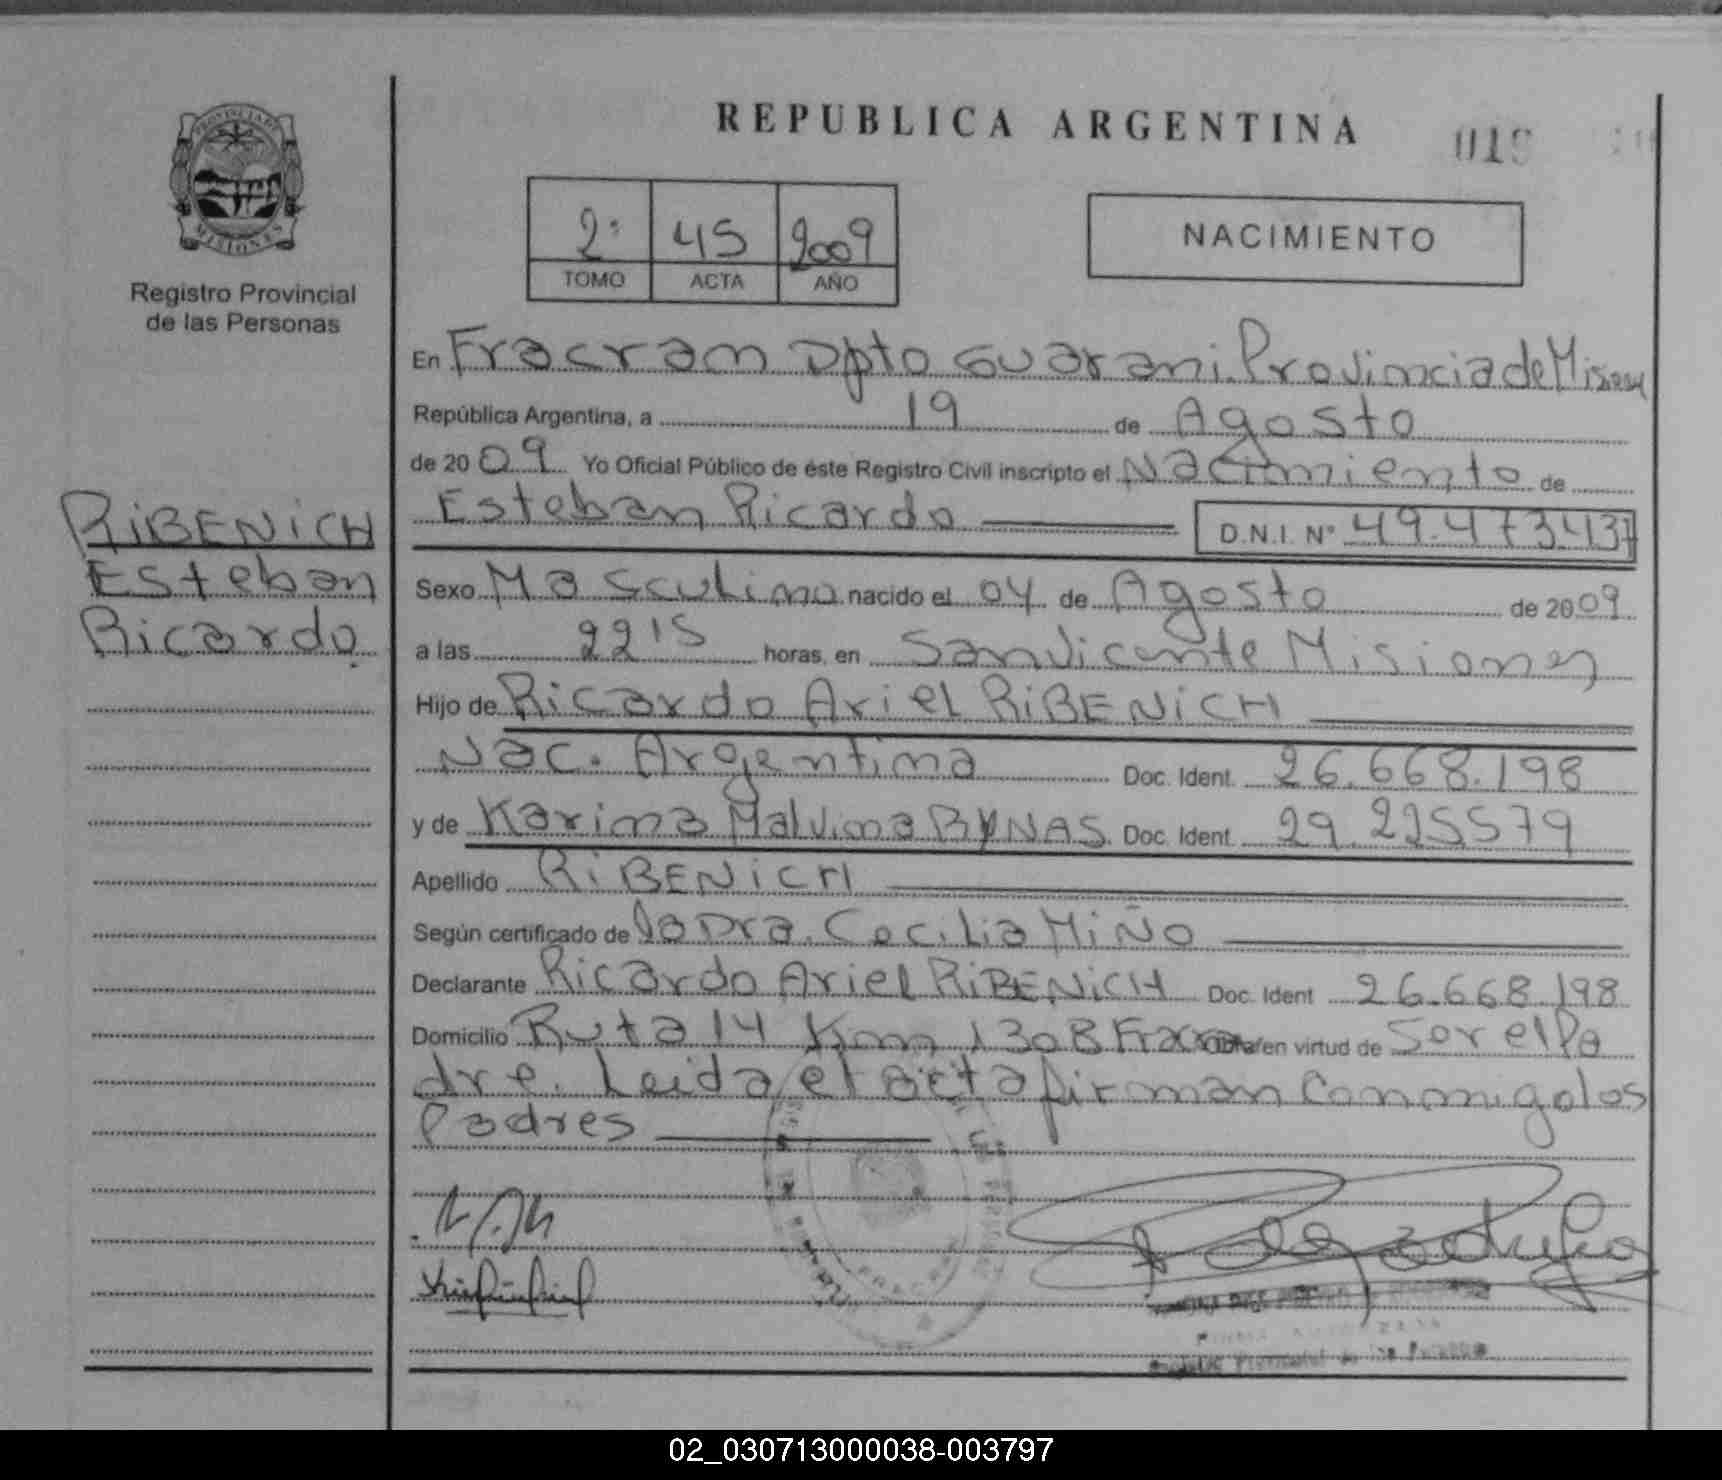 REPUBLICA ARGENTINA
019
PROVINCIA DE
MISIONES
Registro Provincial
de las Personas
2° 45 2009
TOMO ACTA AÑO
NACIMIENTO
En Fracram Dpto Guarani Provincia de Misiones
República Argentina, a 19 de Agosto
de 2009 Yo Oficial Público de éste Registro Civil inscripto el Nacimiento de
Esteban Ricardo D.N.I. N° 49.473.437
RiBENiCH
Esteban
Ricardo
Sexo Masculino nacido el 04 de Agosto de 2009
a las 22 15 horas, en San Vicente Misiones
Hijo de Ricardo Ariel RiBENiCH
Nac. Argentina Doc. Ident. 26.668.198
y de Karina Malvina BYNAS Doc. Ident. 29.225579
Apellido RiBENiCH
Según certificado de la Dra. Cecilia MiÑo
Declarante Ricardo Ariel RiBENiCH Doc. Ident 26.668.198
Domicilio Ruta 14 Km 1308 en virtud de Ser el Pa
dre. Leida el acta firman conmigo los
Padres
02_030713000038-003797